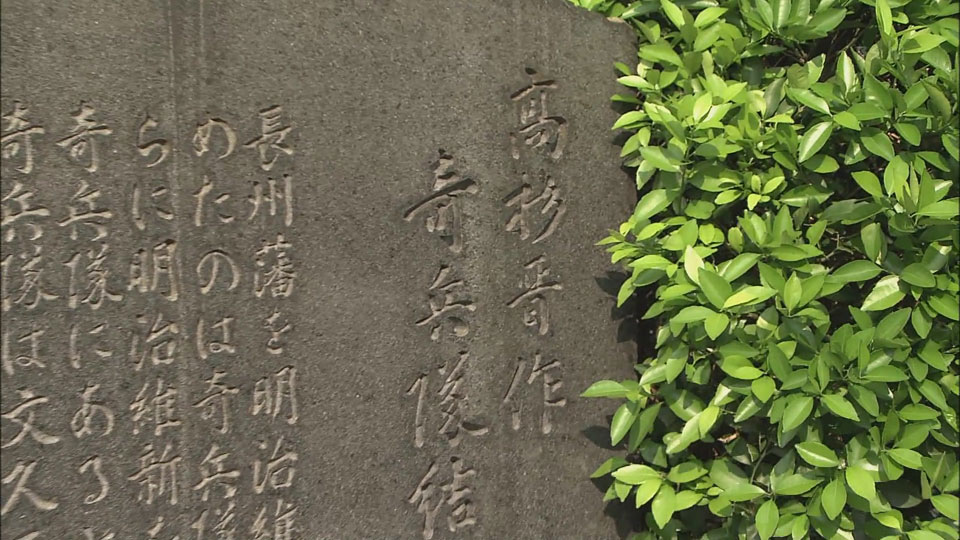 高杉晋作
奇兵隊結
長州藩を明治維
めたのは奇兵隊
らに明治維新
奇兵隊にある
奇兵隊は文久